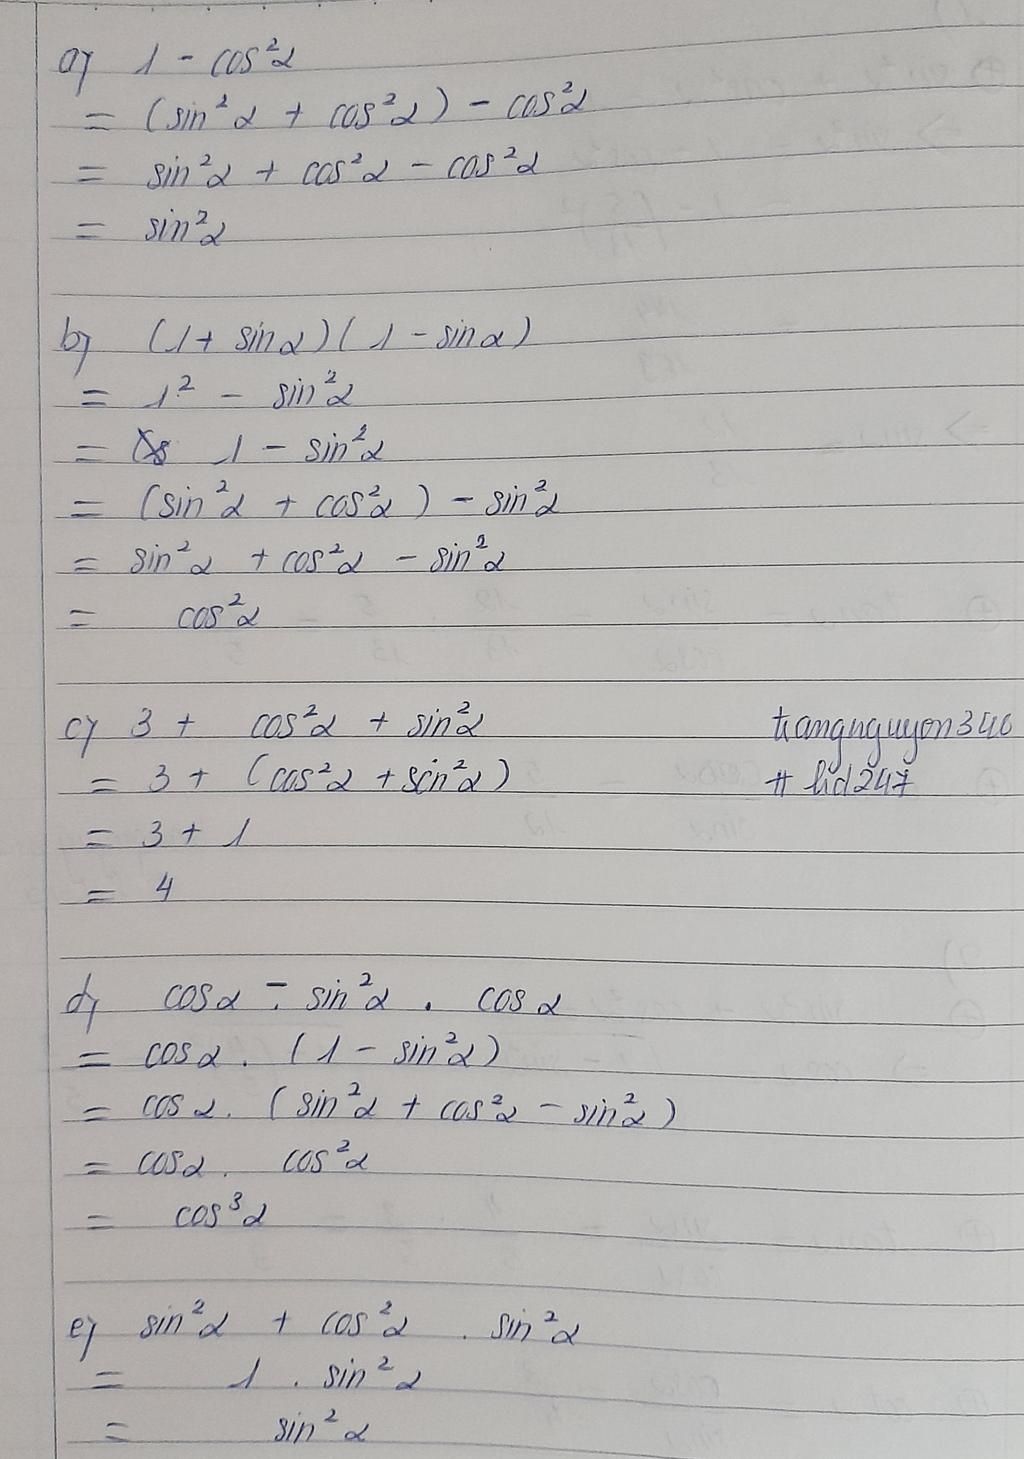 a) 1 - cos²α
= (sin²α + cos²α) - cos²α
= sin²α + cos²α - cos²α
= sin²α
b) (1 + sinα)(1 - sinα)
= 1² - sin²α
= 1 - sin²α
= (sin²α + cos²α) - sin²α
= sin²α + cos²α - sin²α
= cos²α
c) 3 + cos²α + sin²α
trangnguyen346
= 3 + (cos²α + sin²α)
# hd247
= 3 + 1
= 4
d) cosα - sin²α . cosα
= cosα . (1 - sin²α)
= cosα . (sin²α + cos²α - sin²α)
= cosα . cos²α
= cos³α
e) sin²α + cos²α . sin²α
= 1 . sin²α
= sin²α